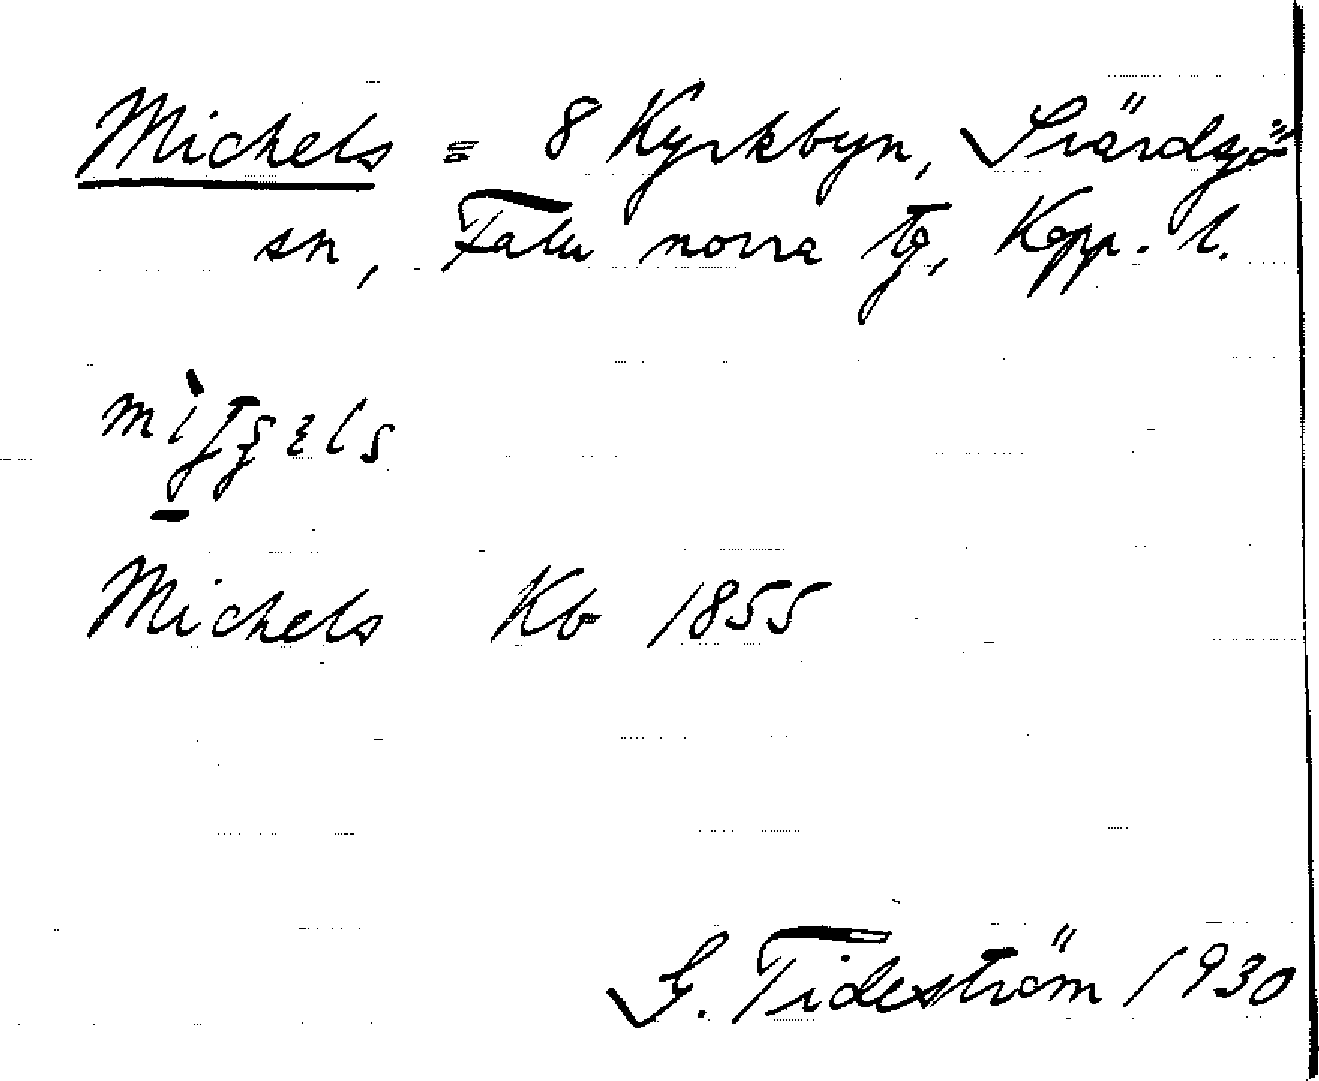 Michels = 8 Kyrkbyn, Svärdsjö
sn, Falu norra tg, Kopp. l.
Michels Kb 1855
G. Tideström 1930